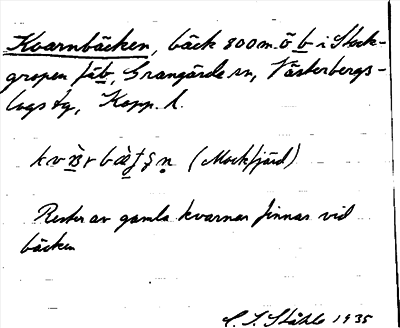 Kvarnbäcken, bäck 800 m. ö b i Stock-
gropen fäb, Grangärde sn, Västerbergs-
lags tg, Kopp. l.
(Mockfjärd)
Rester av gamla kvarnar finnas vid
bäcken
C. I. Ståhle 1935